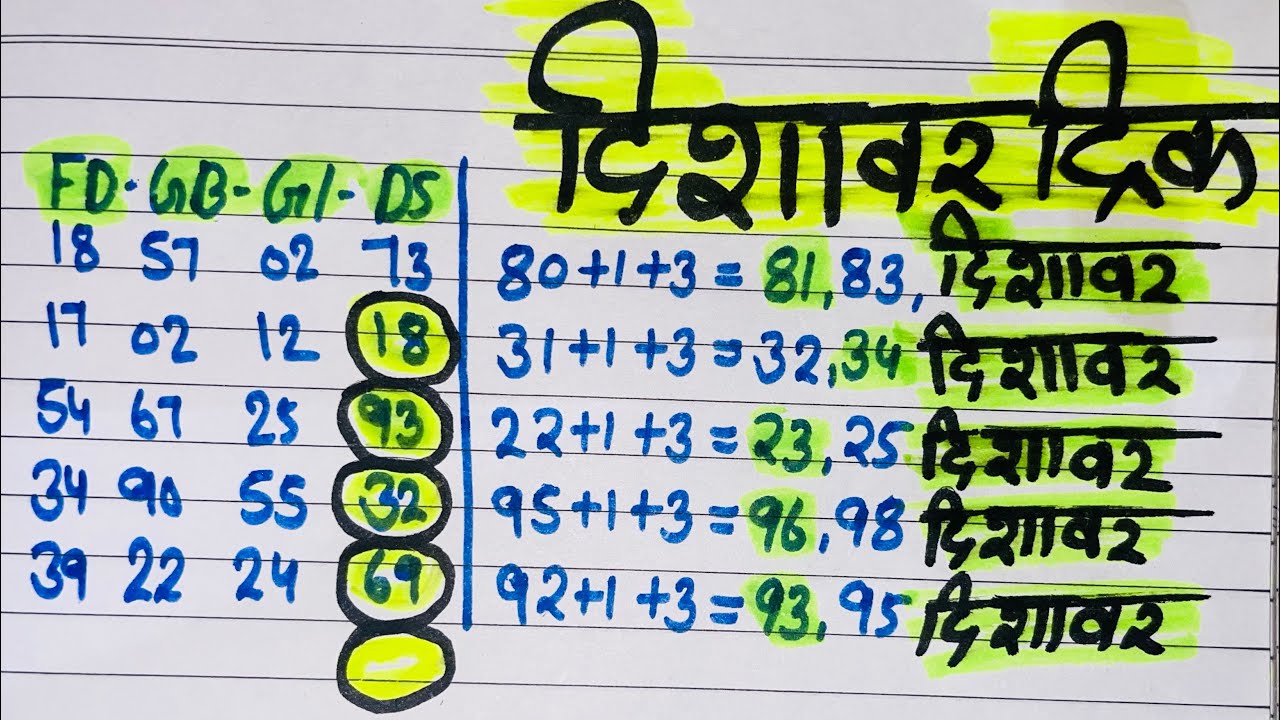 दिशावर ट्रिक
FD - GB - G1 - DS
18 57 02 73
17 02 12 18
54 67 25 93
34 90 55 32
39 22 24 69
80+1+3 = 81, 83, दिशावर
31+1+3 = 32, 34 दिशावर
22+1+3 = 23, 25 दिशावर
95+1+3 = 96, 98 दिशावर
92+1+3 = 93, 95 दिशावर